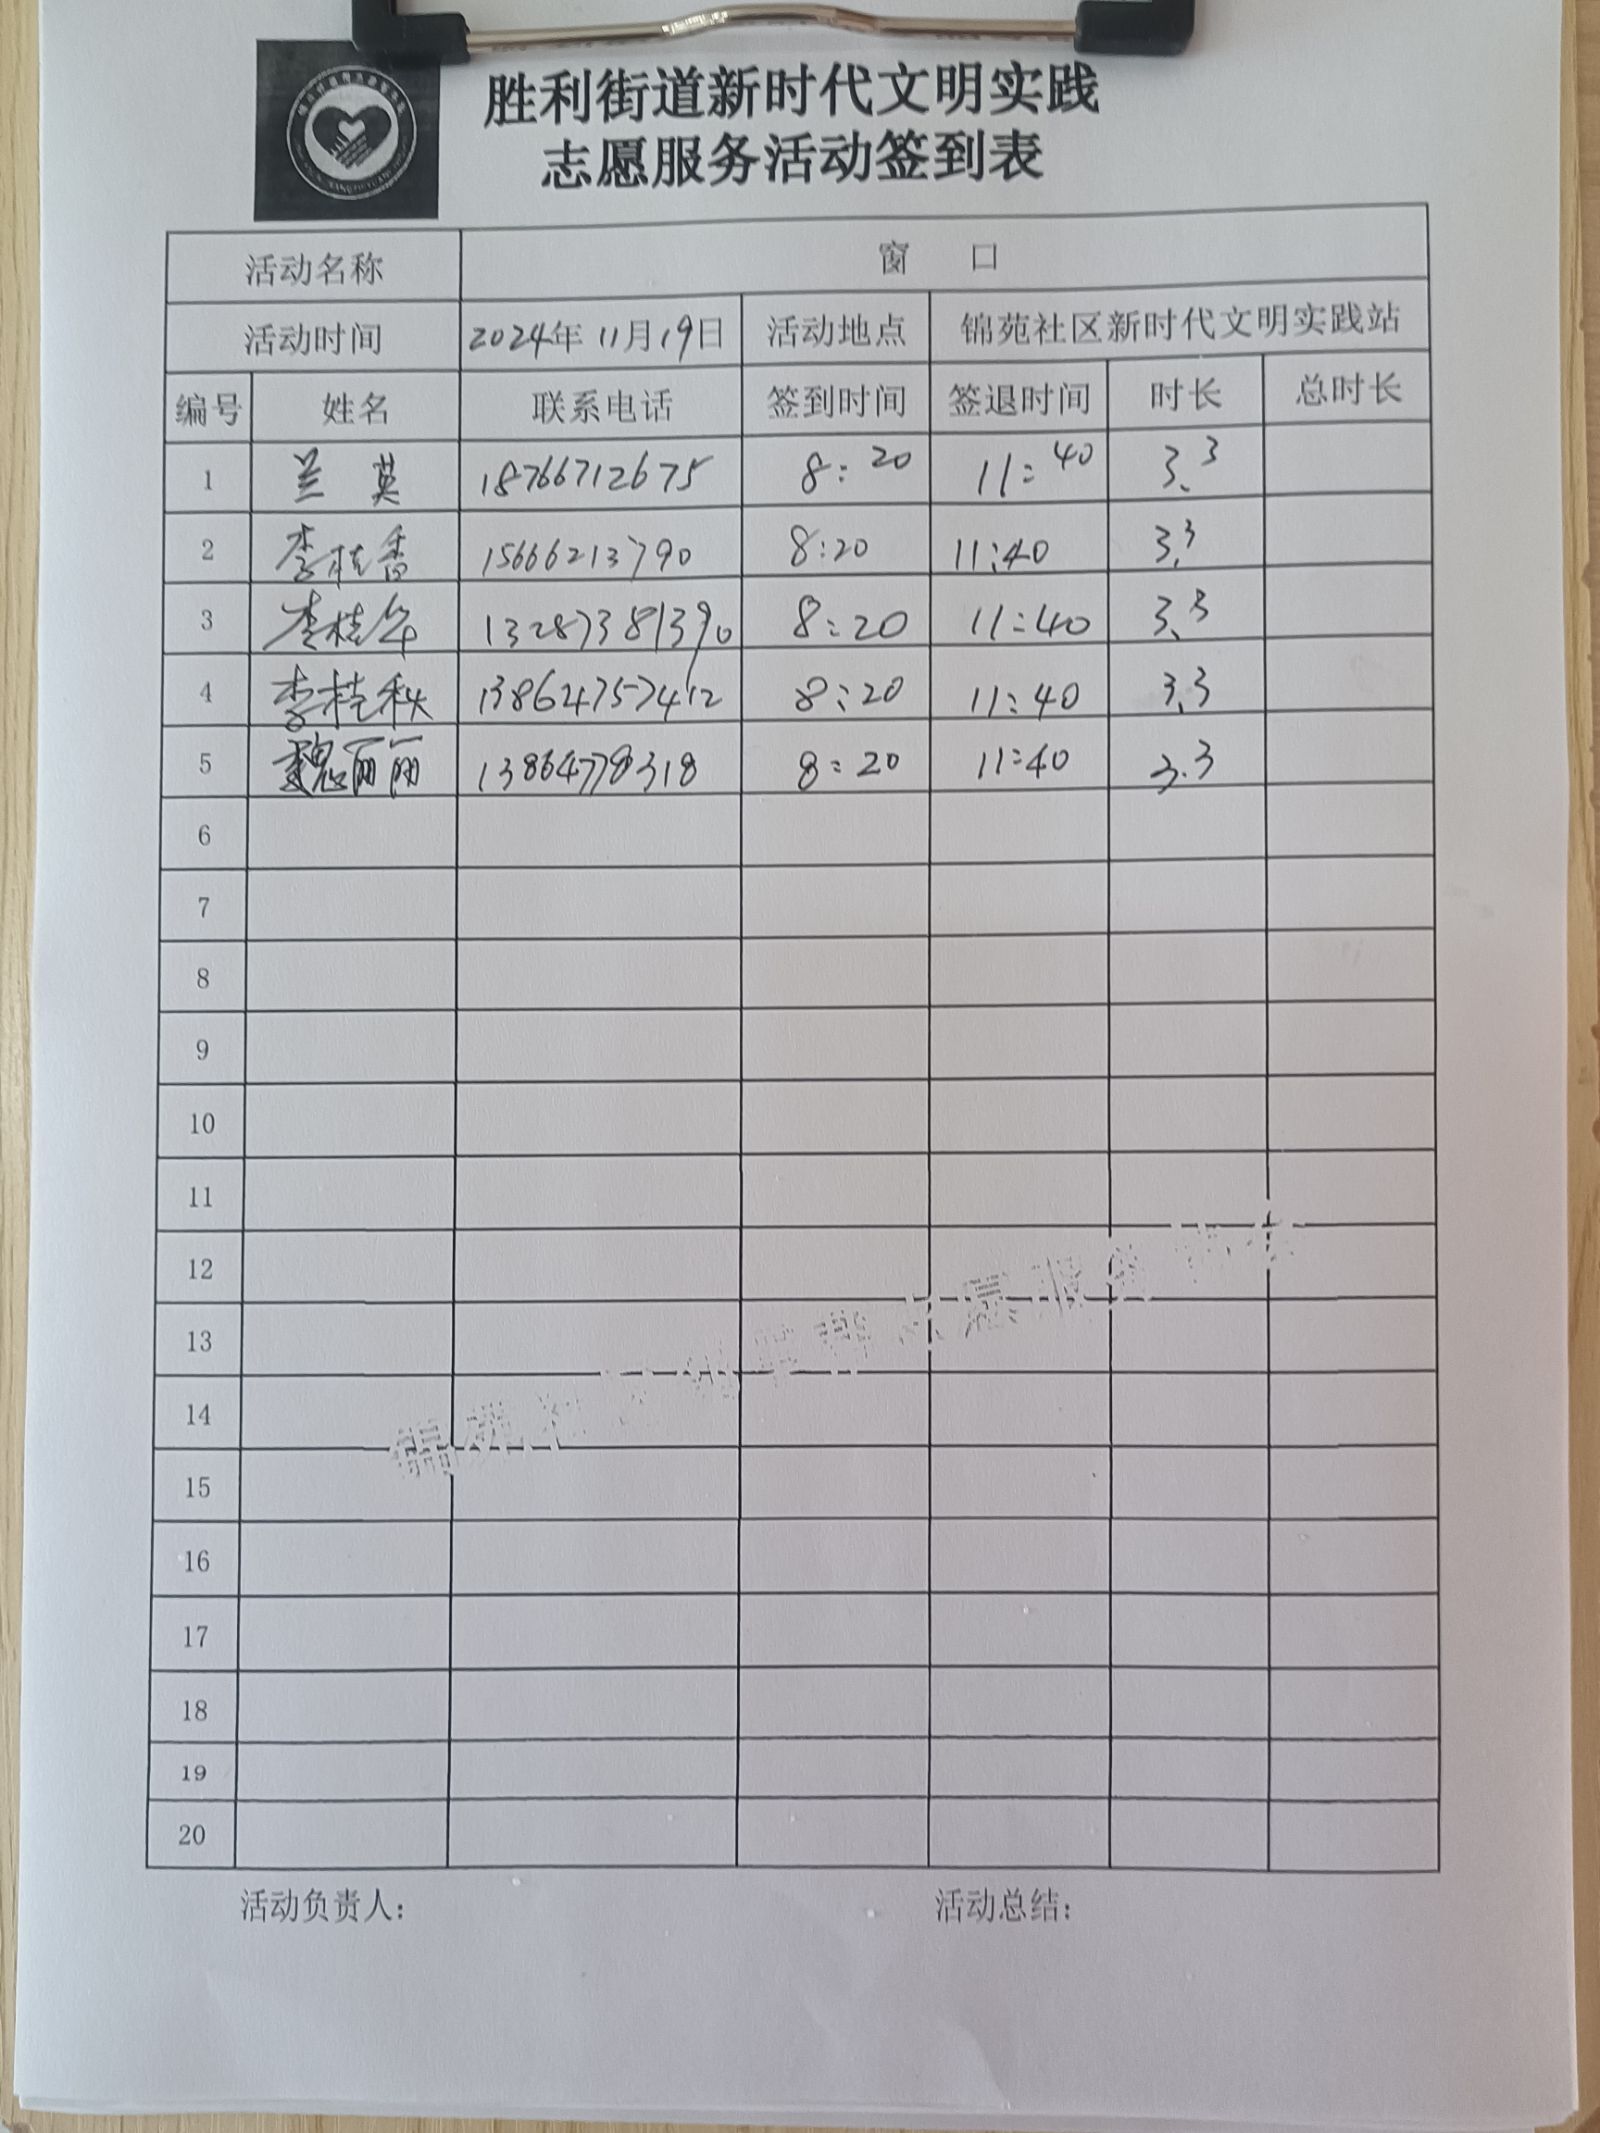 胜利街道新时代文明实践
志愿服务活动签到表
活动名称 窗 口
活动时间 2024年 11月19日 活动地点 锦苑社区新时代文明实践站
编号 姓名 联系电话 签到时间 签退时间 时长 总时长
1 兰 英 18766712675 8:20 11:40 3.3
2 李桂香 15666213790 8:20 11:40 3.3
3 李桂华 13287381390 8:20 11:40 3.3
4 李桂秋 13864757412 8:20 11:40 3.3
5 魏丽丽 13864778318 8:20 11:40 3.3
6
7
8
9
10
11
12
13
14
15
16
17
18
19
20
活动负责人: 活动总结: